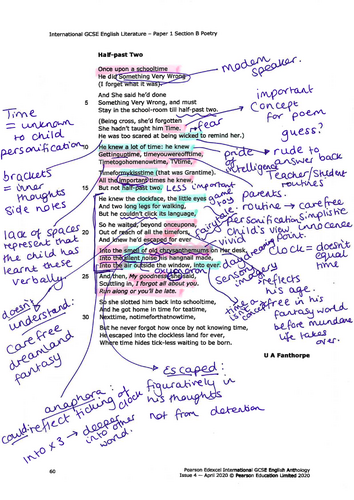 International GCSE English Literature – Paper 1 Section B Poetry
Half-past Two
Once upon a schooltime
He did Something Very Wrong
(I forget what it was).
And She said he'd done
5 Something Very Wrong, and must
Stay in the school-room till half-past two.
(Being cross, she'd forgotten
She hadn't taught him Time.
He was too scared at being wicked to remind her.)
10 He knew a lot of time: he knew
Gettinguptime, timeyouwereofftime,
Timetogohomenowtime, TVtime,
Timeformykisstime (that was Grantime).
All the important times he knew,
15 But not half-past two.
He knew the clockface, the little eyes
And two long legs for walking,
But he couldn't click its language,
So he waited, beyond onceupona,
20 Out of reach of all the timefors,
And knew he'd escaped for ever
Into the smell of old chrysanthemums on Her desk,
Into the silent noise his hangnail made,
Into the air outside the window, into ever.
25 And then, My goodness, she said,
Scuttling in, I forgot all about you.
Run along or you'll be late.
So she slotted him back into schooltime,
And he got home in time for teatime,
30 Nexttime, notimeforthatnowtime,
But he never forgot how once by not knowing time,
He escaped into the clockless land for ever,
Where time hides tick-less waiting to be born.
U A Fanthorpe
modern
speaker.
important
concept
for poem
fear
guess?
Time
= unknown
to child
personification
brackets
= inner
thoughts
side notes
lack of spaces
represent that
the child has
learnt these
verbally.
pride
of
intelligence
rude to
answer back
Teacher/Student
routines
Less important
parents.
routine → carefree
personification simplistic
child's view innocence
point.
fairy
tale.
daydreaming
clock = doesn't
equal
time
oxymoron
sensory
imagery
reflects
his age.
carefree in his
fantasy world
before mundane
life takes
over.
doesn't
understand:
carefree
dreamland
fantasy
anaphora:
could reflect ticking of
clock
into x 3 → deeper
into other
world.
escaped:
figuratively in
his thoughts
not from detention
60
Pearson Edexcel International GCSE English Anthology
Issue 4 – April 2020 © Pearson Education Limited 2020